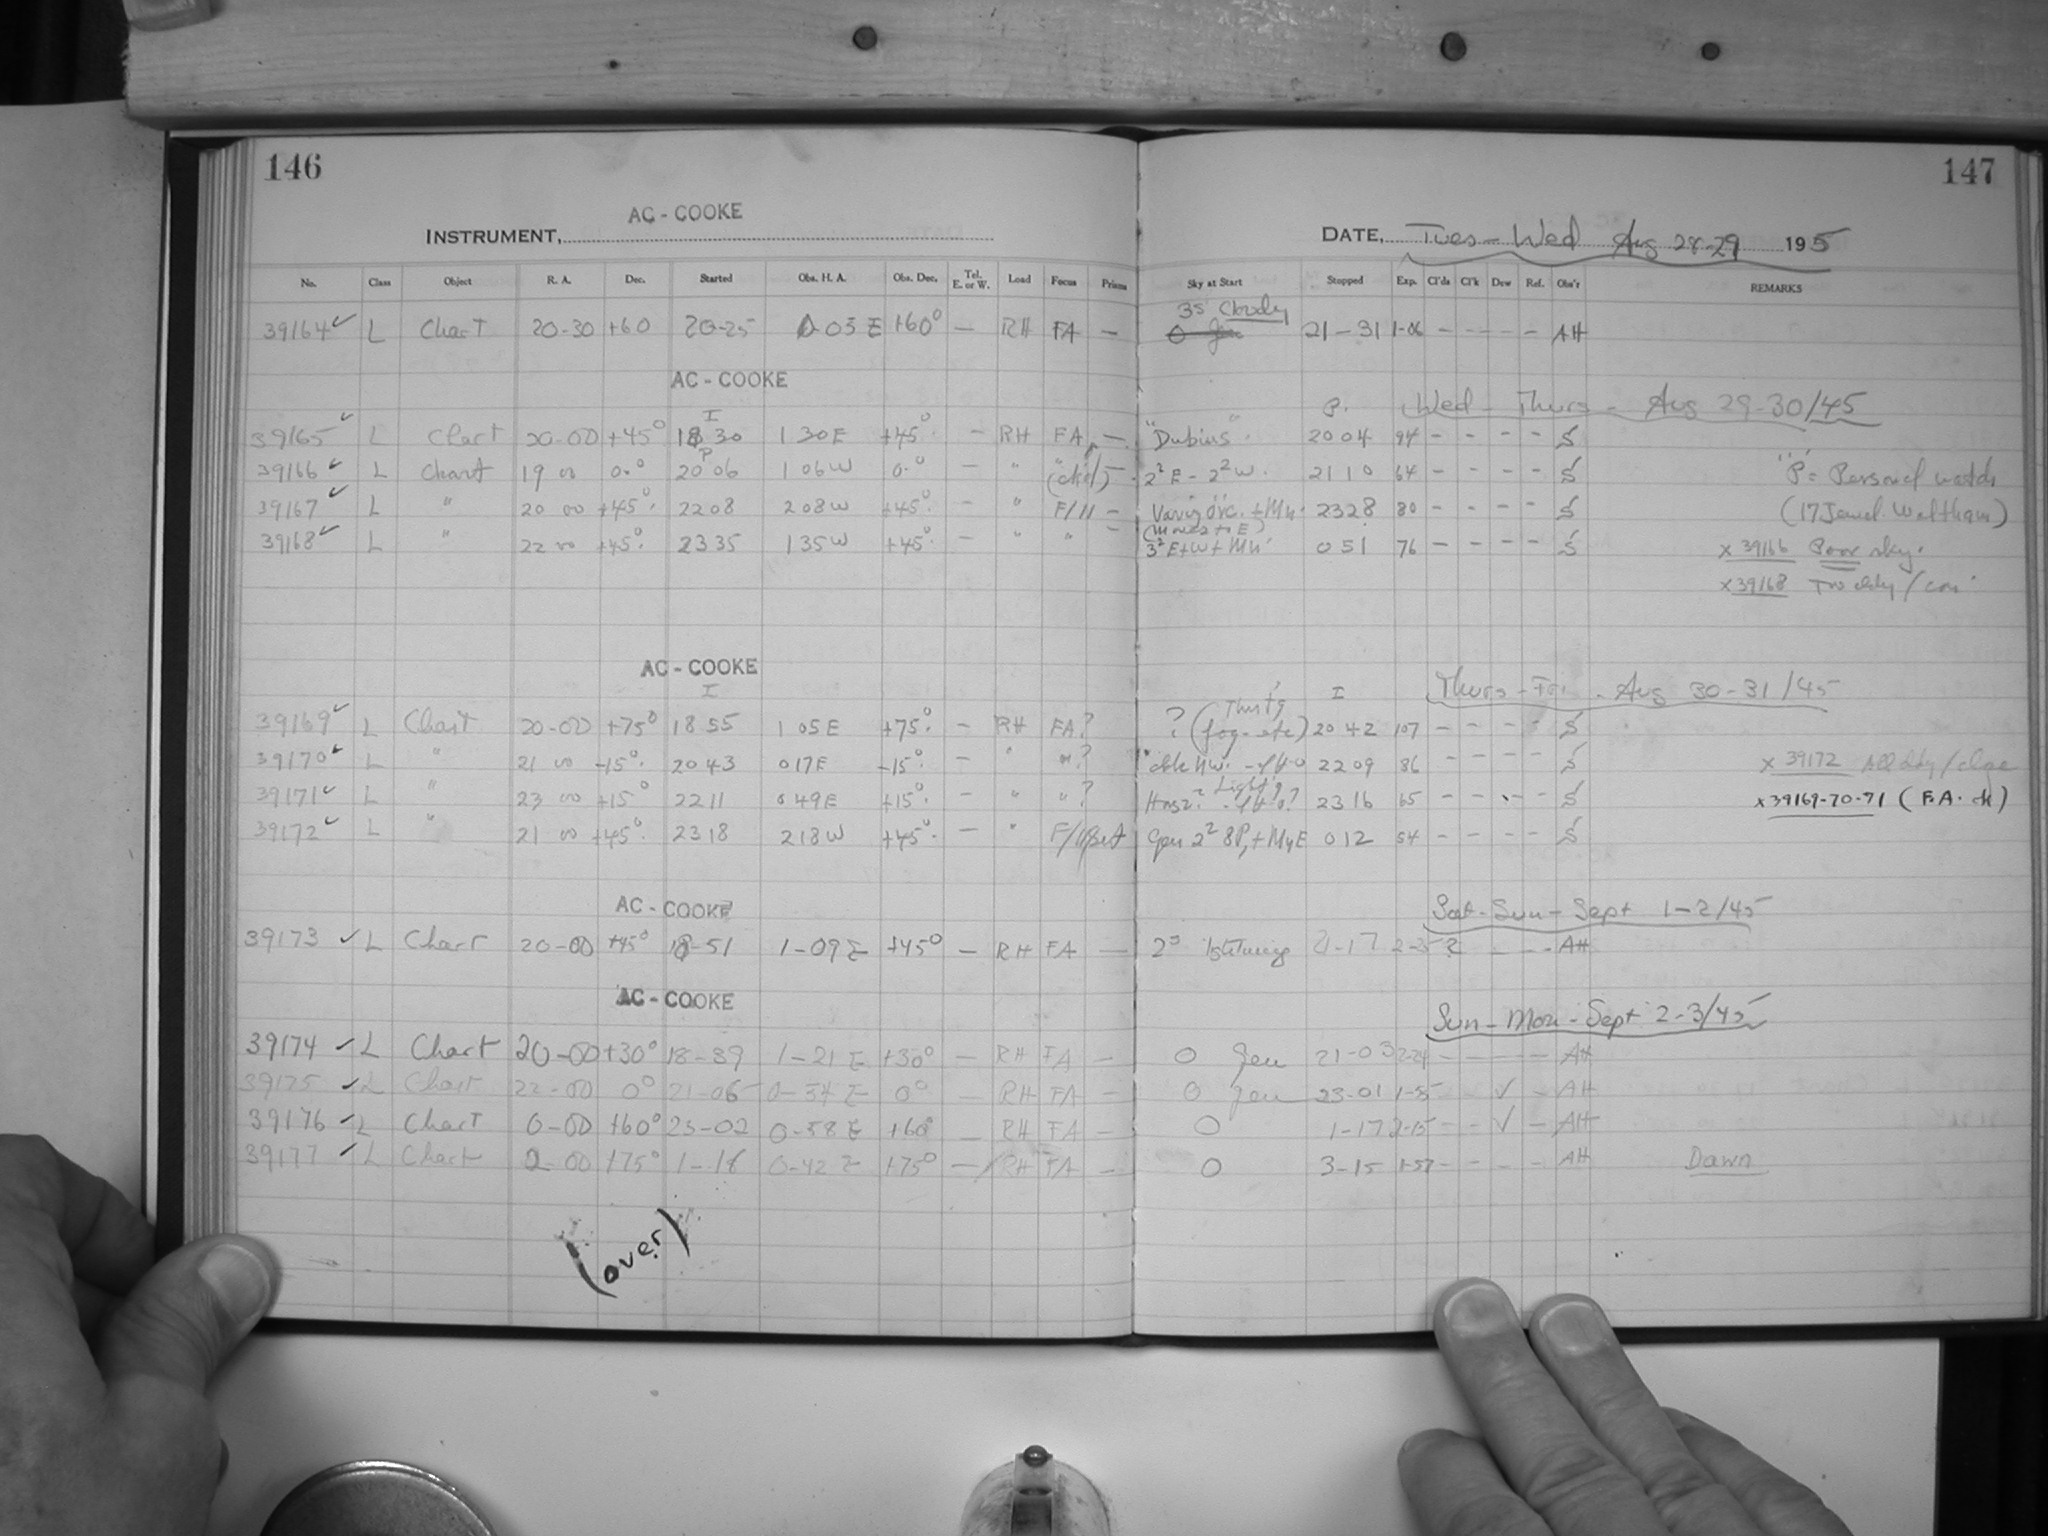 146
147
AC - COOKE
INSTRUMENT,
DATE, Tues - Wed Aug 28-29 195
No. Class Object R. A. Dec. Started Obs. H. A. Obs. Dec. Tel. E. or W. Load Focus Prisms Sky at Start Stopped Exp. Cl'ds Cl'k Dew Ref. Obs'r REMARKS
3s Cloudy
39164 ✓ L Chart 20-30 +60 20-25 0-05 E +60° — RH FA — 21-31 1-06 - - - - AH
AC - COOKE
P. Wed - Thurs - Aug 29-30/45
I
39165 ✓ L Chart 20-00 +45° 18 30 1 30 E +45° - RH FA — "Dubius" 20 04 94 - - - - S
P
39166 ✓ L Chart 19 00 0.° 20 06 1 06 W 0.° - " 2² E - 2² W. 21 10 64 - - - - S "P" = Personal watch
39167 ✓ L " 20 00 +45° 22 08 2 08 W +45° - " F/11 - 23 28 80 - - - - S (17 Jewel. Waltham)
(moves to E)
39168 ✓ L " 22 00 +45° 23 35 1 35 W +45° - " " 3² E+W+Mn 0 51 76 - - - - S x 39166 Poor sky.
x 39168
AC - COOKE
I I Thurs - Fri - Aug 30-31/45
39169 ✓ L Chart 20-00 +75° 18 55 1 05 E +75° - RH FA? ? (fog-etc) 20 42 107 - - - - S
39170 ✓ L " 21 00 -15° 20 43 0 17 E -15° - " "? 22 09 86 - - - - S x 39172
Light?
39171 ✓ L " 23 00 +15° 22 11 0 49 E +15° - " "? 23 16 65 - - - - S x 39169-70-71 (F.A. ch)
39172 ✓ L " 21 00 +45° 23 18 2 18 W +45° - " 0 12 54 - - - - S
AC - COOKE
Sat - Sun - Sept 1-2/45
39173 ✓ L Chart 20-00 +45° 18-51 1-09 E +45° — RH FA — 2s 21-17 - - - AH
AC - COOKE
Sun - Mon - Sept 2-3/45
39174 ✓ L Chart 20-00 +30° 18-39 1-21 E +30° — RH FA — 0 Gen 21-03 2-24 - - - - AH
39175 ✓ L Chart 22-00 0° 21-06 0-54 E 0° RH FA — 0 Gen 23-01 1-55 - - ✓ - AH
39176 ✓ L Chart 0-00 +60° 23-02 0-58 E +60° — RH FA — 0 1-17 2-15 - - ✓ - AH
39177 ✓ L Chart 2-00 +75° 1-18 0-42 E +75° — RH FA — 0 3-15 1-57 - - - - AH Dawn
(over)